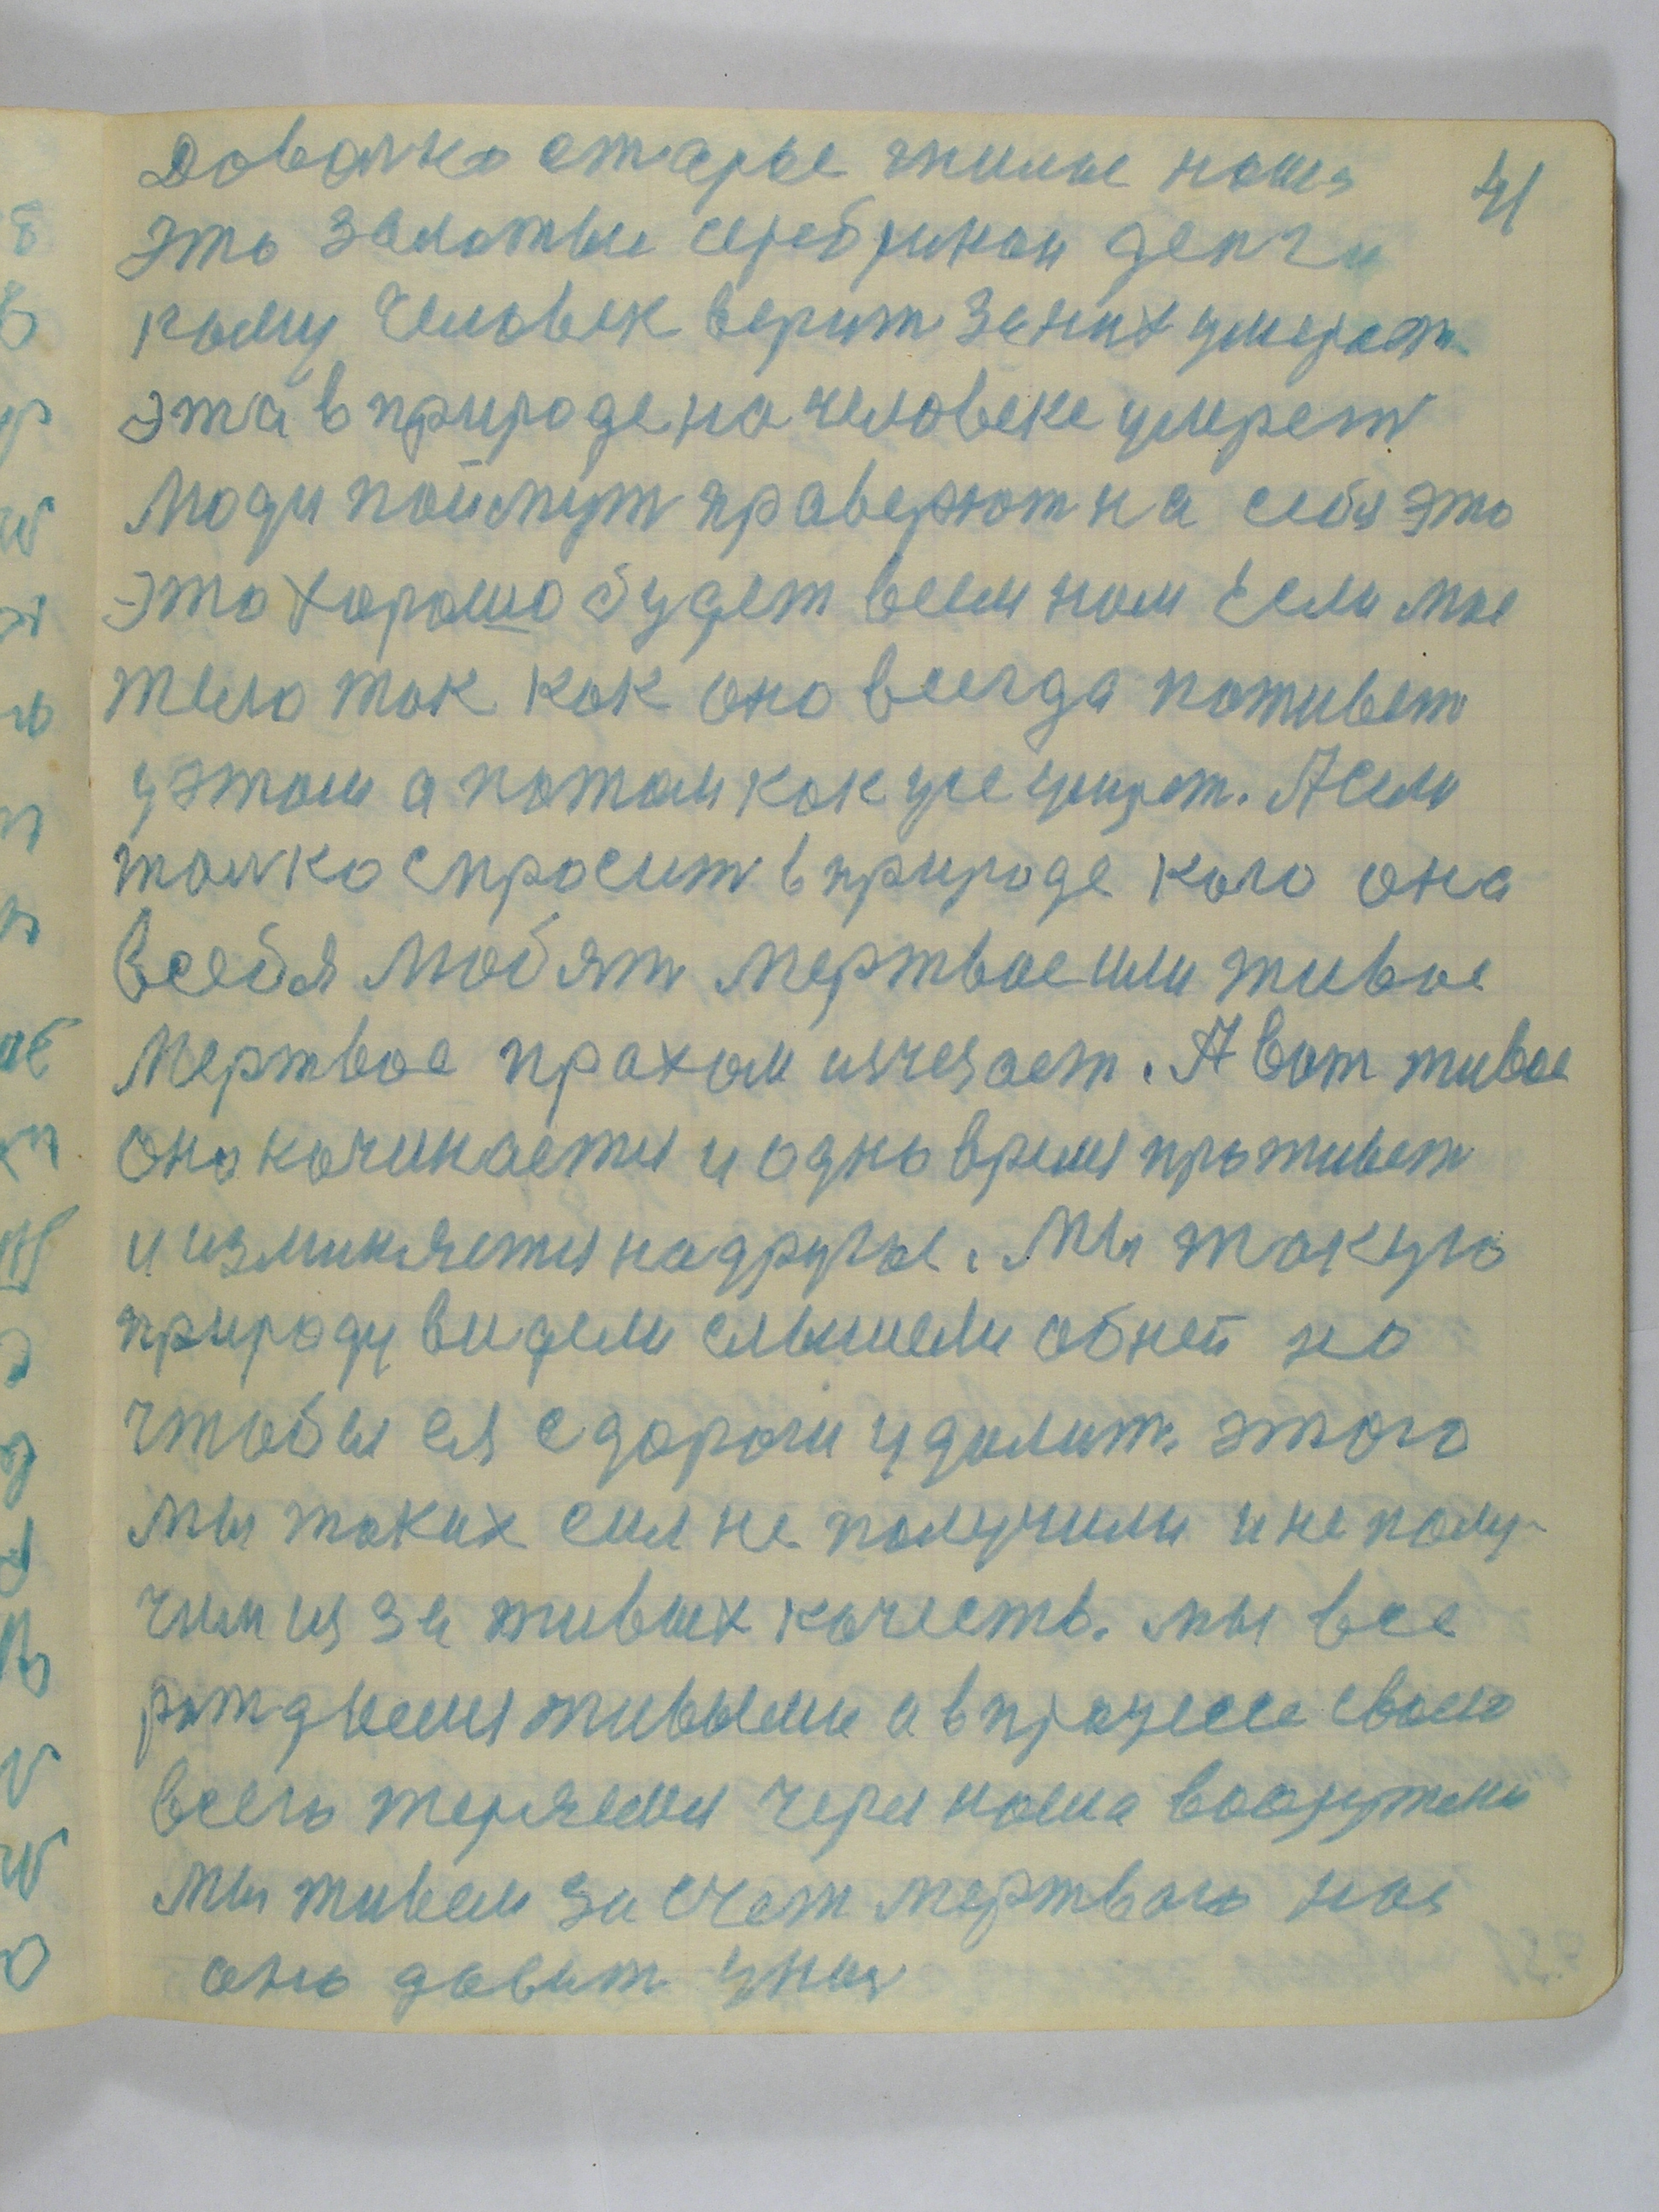 41
Доволно старые гнилые нашы
это залотыи серебринаи денги
кому человек верит за них умерает
эта в природе на человеке умерет
Люди поймут праверют на себя это
это хорошо будет всем нам Если мое
тело так как оно всегда поживет
у этом а потом как усе умрет. А если
толко спросит в природе кого она
в себя любят мертвое или живое
Мертвое прахом изчезает. А вот живое
оно начинается и одно время проживет
и изминяется на другое. Мы такую
природу видели слышели об ней но
чтобы ея с дороги удалит этого
мы таких сил не получили и не полу-
чим из за живых качеств. мы все
рождаемся живыми а в процессе своего
всего теряемся через наша вооружения
Мы живем за счет мертвого нас
оно давит у нас